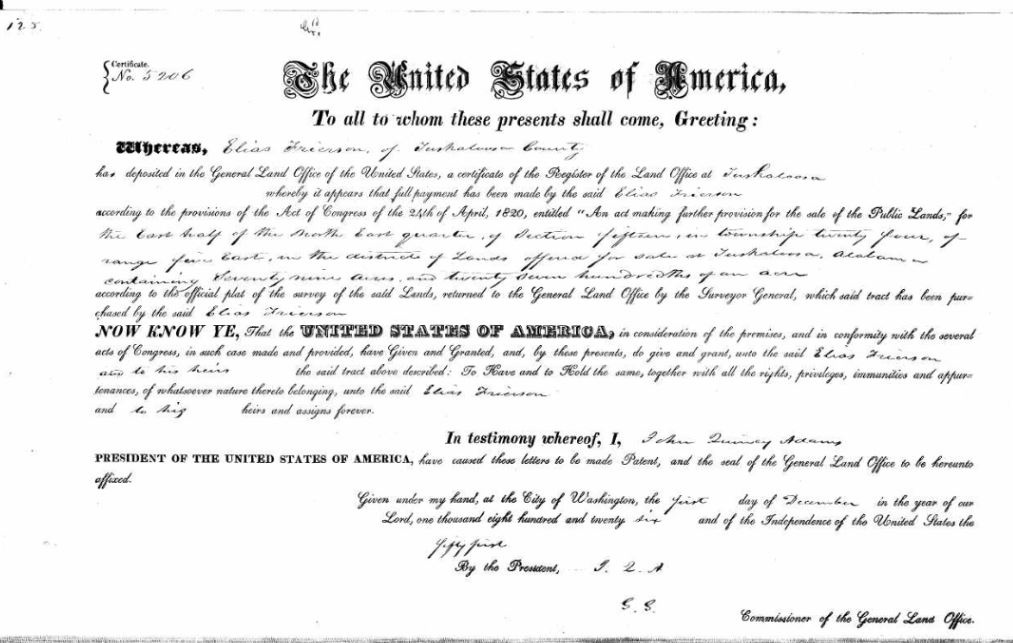 125.
Certificate.
No. 5206
The United States of America,
To all to whom these presents shall come, Greeting:
Whereas, Elias Frierson, of Tuskaloosa County
has deposited in the General Land Office of the United States, a certificate of the Register of the Land Office at Tuskaloosa
whereby it appears that full payment has been made by the said Elias Frierson
according to the provisions of the Act of Congress of the 24th of April, 1820, entitled "An act making further provision for the sale of the Public Lands," for
the East half of the North East quarter, of Section fifteen, in township twenty four, of
range five East, in the district of Lands offered for sale at Tuskaloosa, Alabama
containing Seventy nine acres, and twenty seven hundredths of an acre
according to the official plat of the survey of the said Lands, returned to the General Land Office by the Surveyor General, which said tract has been pur-
chased by the said Elias Frierson
NOW KNOW YE, That the UNITED STATES OF AMERICA, in consideration of the premises, and in conformity with the several
acts of Congress, in such case made and provided, have Given and Granted, and, by these presents, do give and grant, unto the said Elias Frierson
and to his heirs the said tract above described: To Have and to Hold the same, together with all the rights, privileges, immunities and appur-
tenances, of whatsoever nature thereto belonging, unto the said Elias Frierson
and to his heirs and assigns forever.
In testimony whereof, I, John Quincy Adams
PRESIDENT OF THE UNITED STATES OF AMERICA, have caused these letters to be made Patent, and the seal of the General Land Office to be hereunto
affixed.
Given under my hand, at the City of Washington, the first day of December in the year of our
Lord, one thousand eight hundred and twenty six and of the Independence of the United States the
fifty first
By the President, J. Q. A
G. G.
Commissioner of the General Land Office.